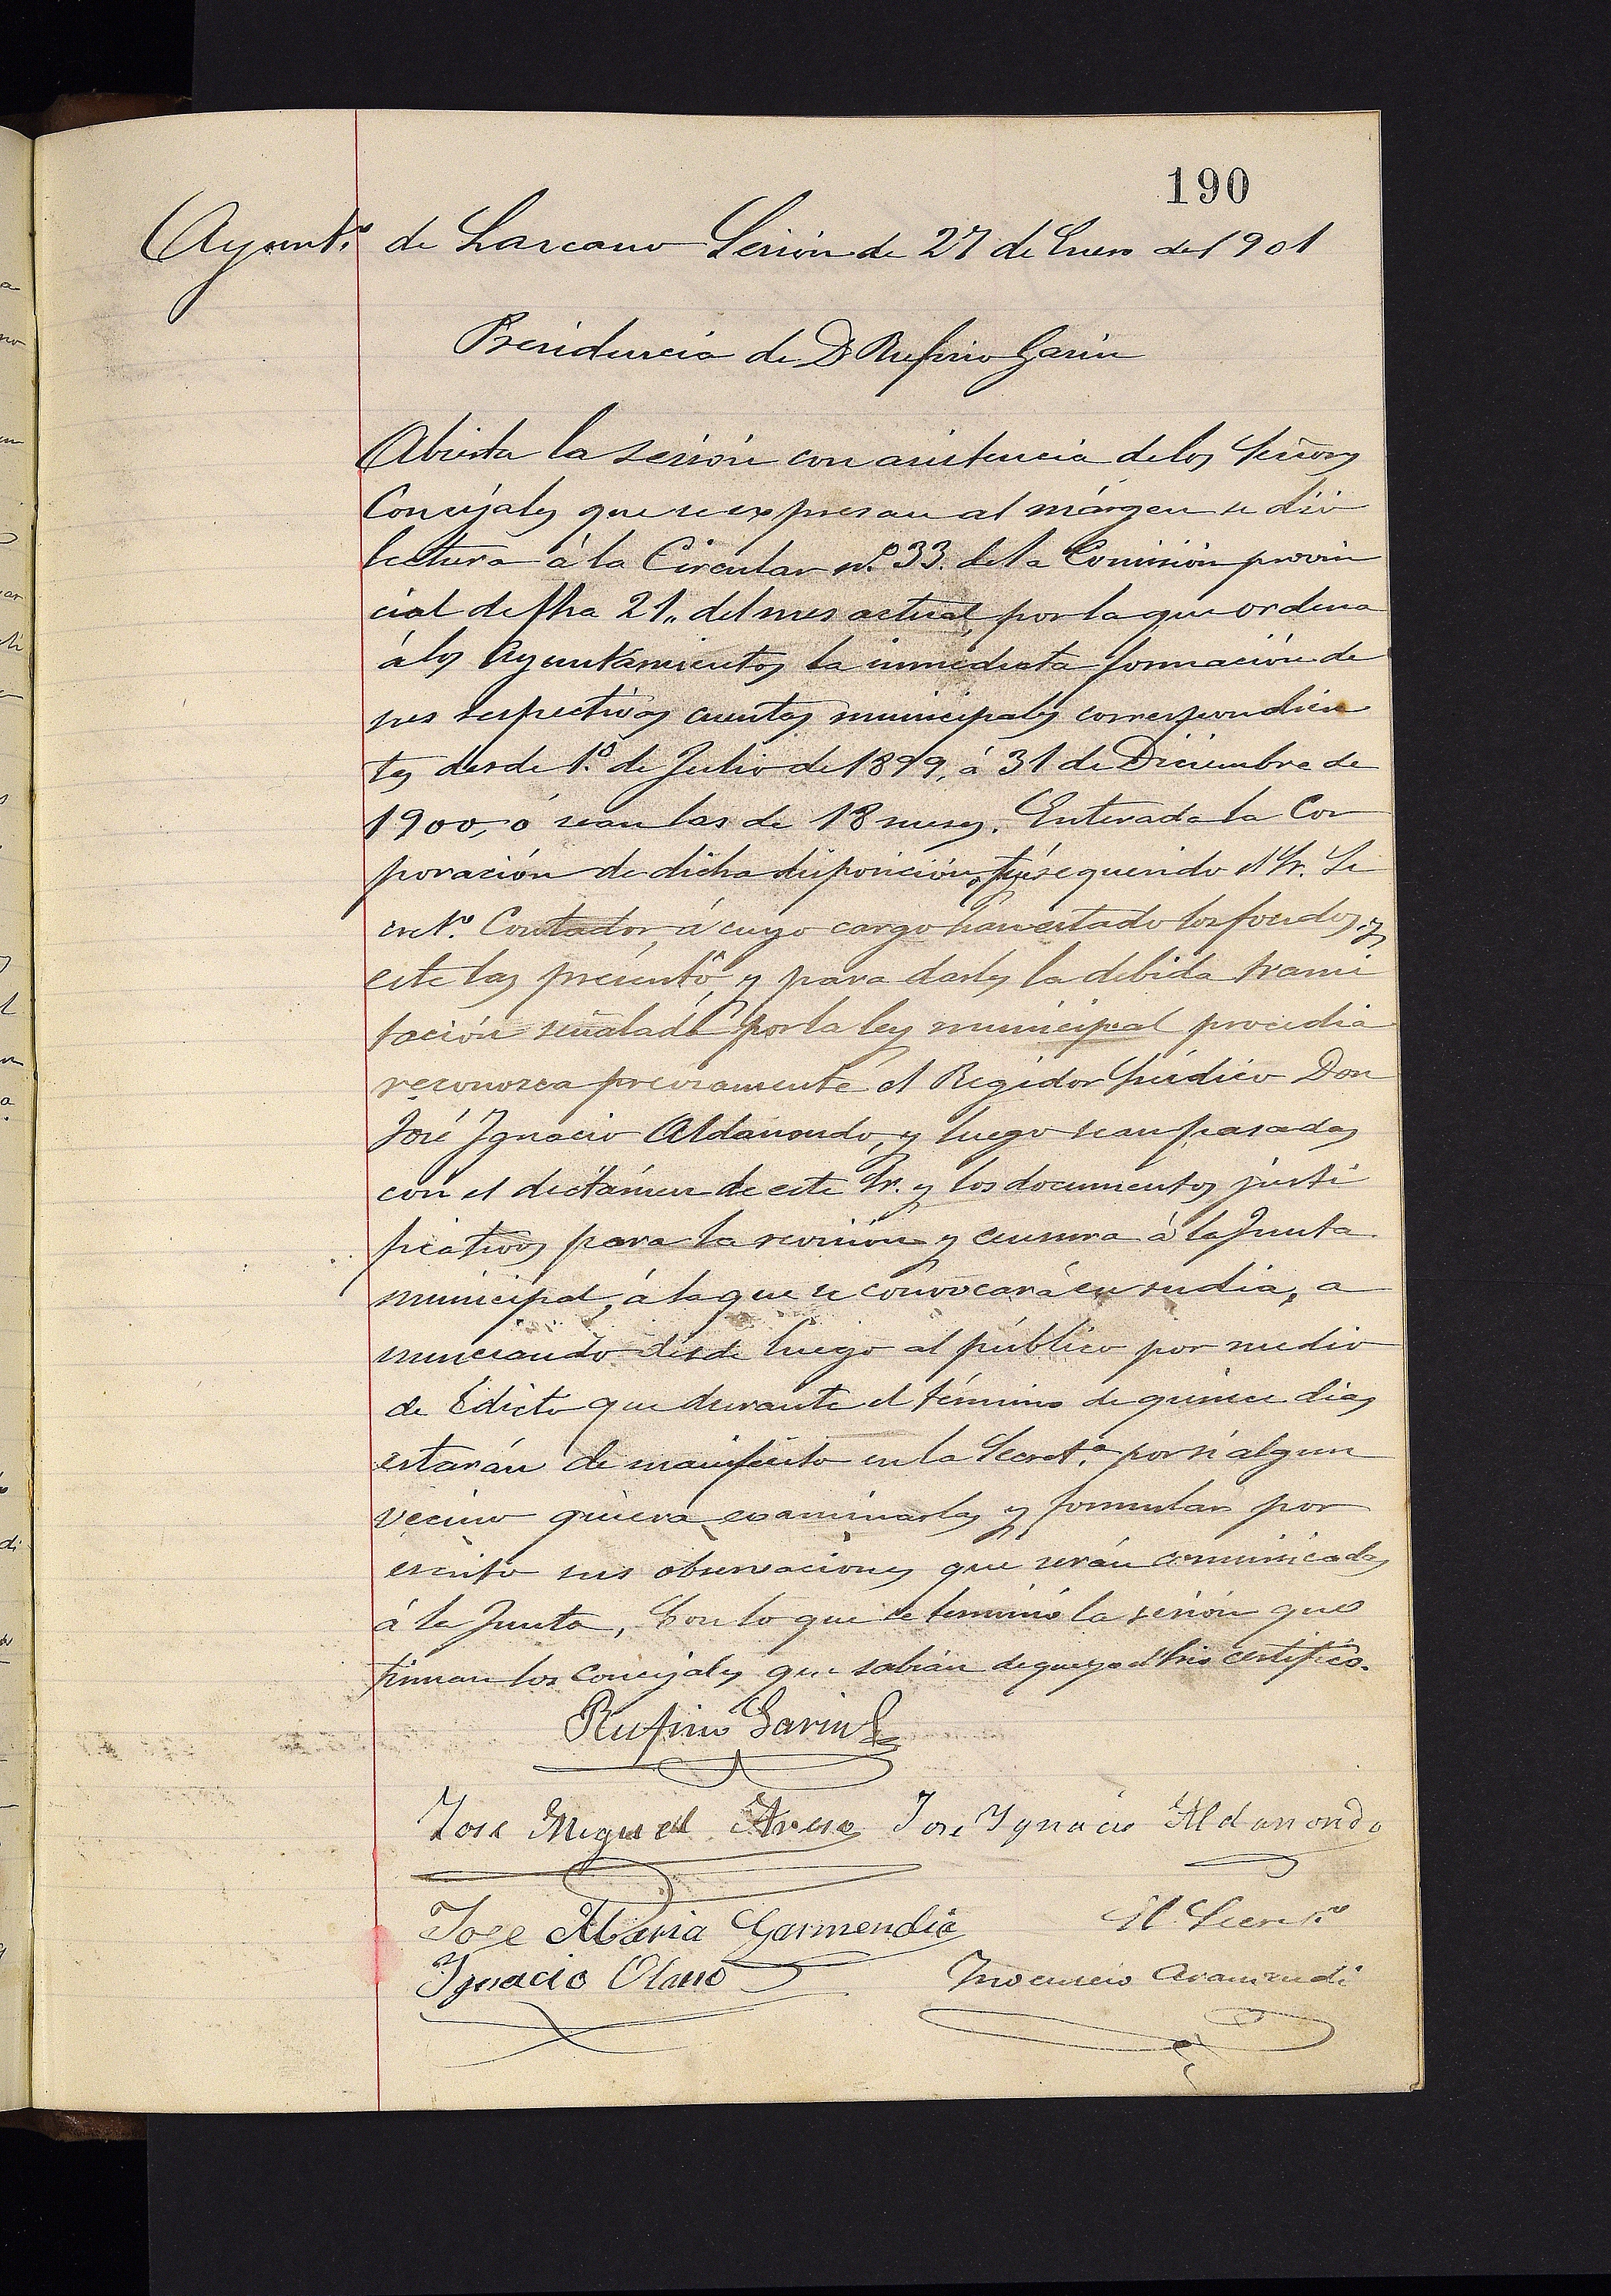 190
Ayunt.º de Lazcano Sesión de 27 de Enero de 1901
Presidencia de D Rufino Garin
Abierta la sesión con asistencia de los Señores
Concejales que se expresan al márgen se dió
lectura á la Circular n.º 33. de la Comisión provin
cial de fha 21,, del mes actual, por la que ordena
á los Ayuntamientos la inmediata formación de
sus respectivas cuentas municipales correspondien
tes desde 1.º de Julio de 1899, á 31 de Diciembre de
1900, ó sean las de 18 meses. Enterada la Cor
poración de dicha disposición, fué requerido el Sr. Se
cret.º Contador á cuyo cargo han estado los fondos, y
este las presentó, y para darles la debida trami
tación señalada por la ley municipal procedia
reconozca previamente el Regidor Síndico Don
José Ignacio Aldanondo, y luego sean pasadas
con el dictámen de este Sr. y los documentos justi
ficativos para la revisión y censura á la Junta
municipal, á la que se convocará en su dia, a
nunciando desde luego al público por medio
de Edicto que durante el término de quince dias
estarán de manifiesto en la Secret.ª por si algun
vecino quiera examinarlas y formular por
escrito sus observaciones que serán comunicadas
á la Junta, Con lo que se terminó la sesión que
firman los concejales que sabian de que yo el Srio certifico.
Rufino Garin
José Miguel José Ignacio Aldanondo
Jose Maria Garmendia El Secret.º
Ignacio Olano Inocencio Aramendi